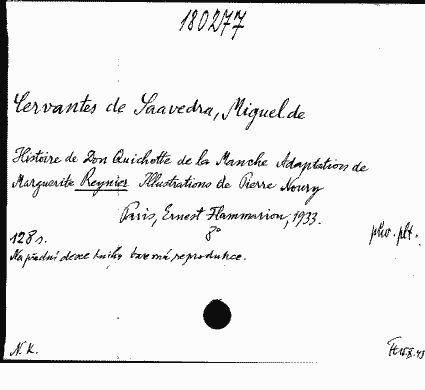 180277
Cervantes de Saavedra, Miguel de
Histoire de Don Quichotte de la Manche Adaptation de
Marguerite Reynier Illustrations de Pierre Noury
Paris, Ernest Flammarion, 1933.
8°
128 s. pův. plt.
Na přední desce knihy barevná reprodukce.
N. K.